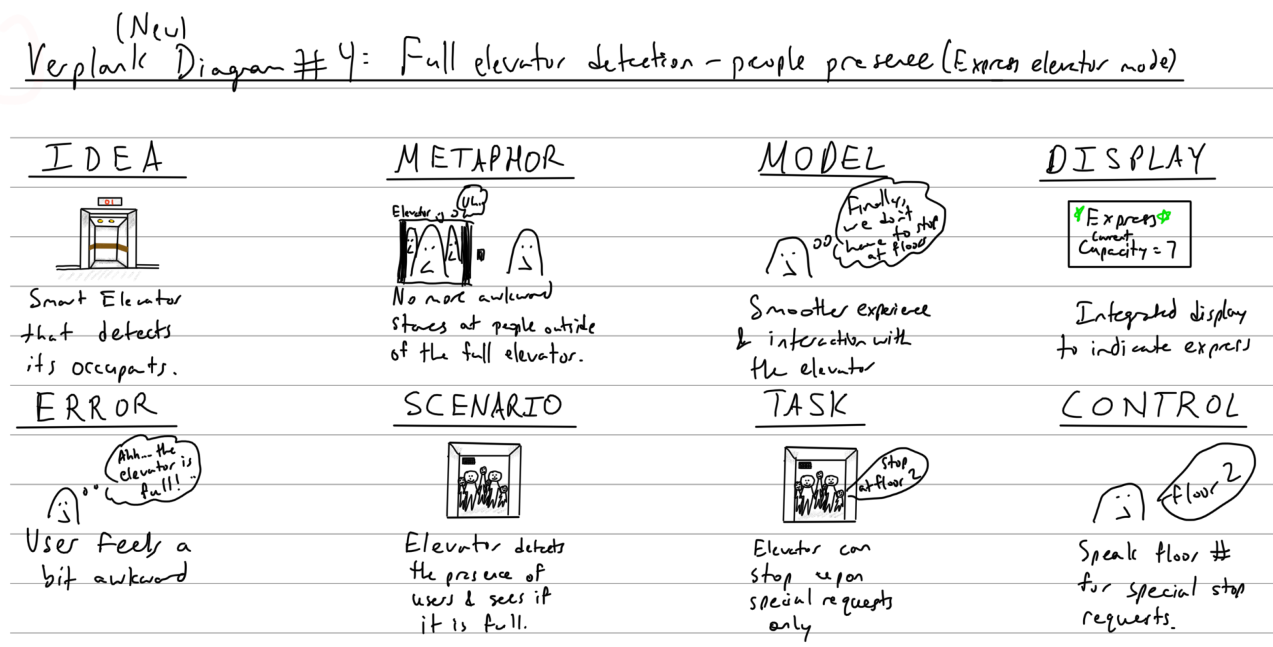 (New)
Verplank Diagram # 4: Full elevator detection - people presence (Express elevator mode)
IDEA
01
Smart Elevator
that detects
its occupants.
METAPHOR
Elevator
No more awkward
stares at people outside
of the full elevator.
MODEL
Finally,
we don't
have to stop
at floors
Smoother experience
& interaction with
the elevator
DISPLAY
Express
Current
Capacity = 7
Integrated display
to indicate express
ERROR
Ahh... the
elevator is
full!
User feels a
bit awkward
SCENARIO
Elevator detects
the presence of
users & sees if
it is full.
TASK
Stop
at floor 2
Elevator can
stop upon
special requests
only
CONTROL
floor 2
Speak floor #
for special stop
requests.